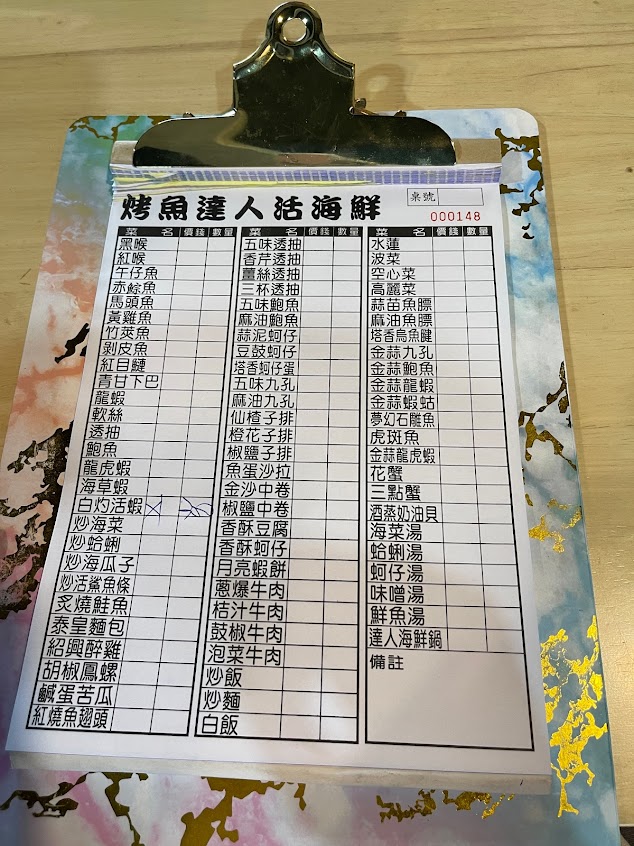 烤魚達人活海鮮
桌號
000148
菜 名 價錢 數量
黑喉
紅喉
午仔魚
赤鯮魚
馬頭魚
黃雞魚
竹莢魚
剝皮魚
紅目鰱
青甘下巴
龍蝦
軟絲
透抽
鮑魚
龍虎蝦
海草蝦
白灼活蝦
炒海菜
炒蛤蜊
炒海瓜子
炒活鯊魚條
炙燒鮭魚
泰皇麵包
紹興醉雞
胡椒鳳螺
鹹蛋苦瓜
紅燒魚翅頭
菜 名 價錢 數量
五味透抽
香芹透抽
薑絲透抽
三杯透抽
五味鮑魚
麻油鮑魚
蒜泥蚵仔
豆鼓蚵仔
塔香蚵仔蛋
五味九孔
麻油九孔
仙楂子排
橙花子排
椒鹽子排
魚蛋沙拉
金沙中卷
椒鹽中卷
香酥豆腐
香酥蚵仔
月亮蝦餅
蔥爆牛肉
桔汁牛肉
鼓椒牛肉
泡菜牛肉
炒飯
炒麵
白飯
菜 名 價錢 數量
水蓮
波菜
空心菜
高麗菜
蒜苗魚膘
麻油魚膘
塔香烏魚腱
金蒜九孔
金蒜鮑魚
金蒜龍蝦
金蒜蝦蛄
夢幻石雕魚
虎斑魚
金蒜龍虎蝦
花蟹
三點蟹
酒蒸奶油貝
海菜湯
蛤蜊湯
蚵仔湯
味噌湯
鮮魚湯
達人海鮮鍋
備註